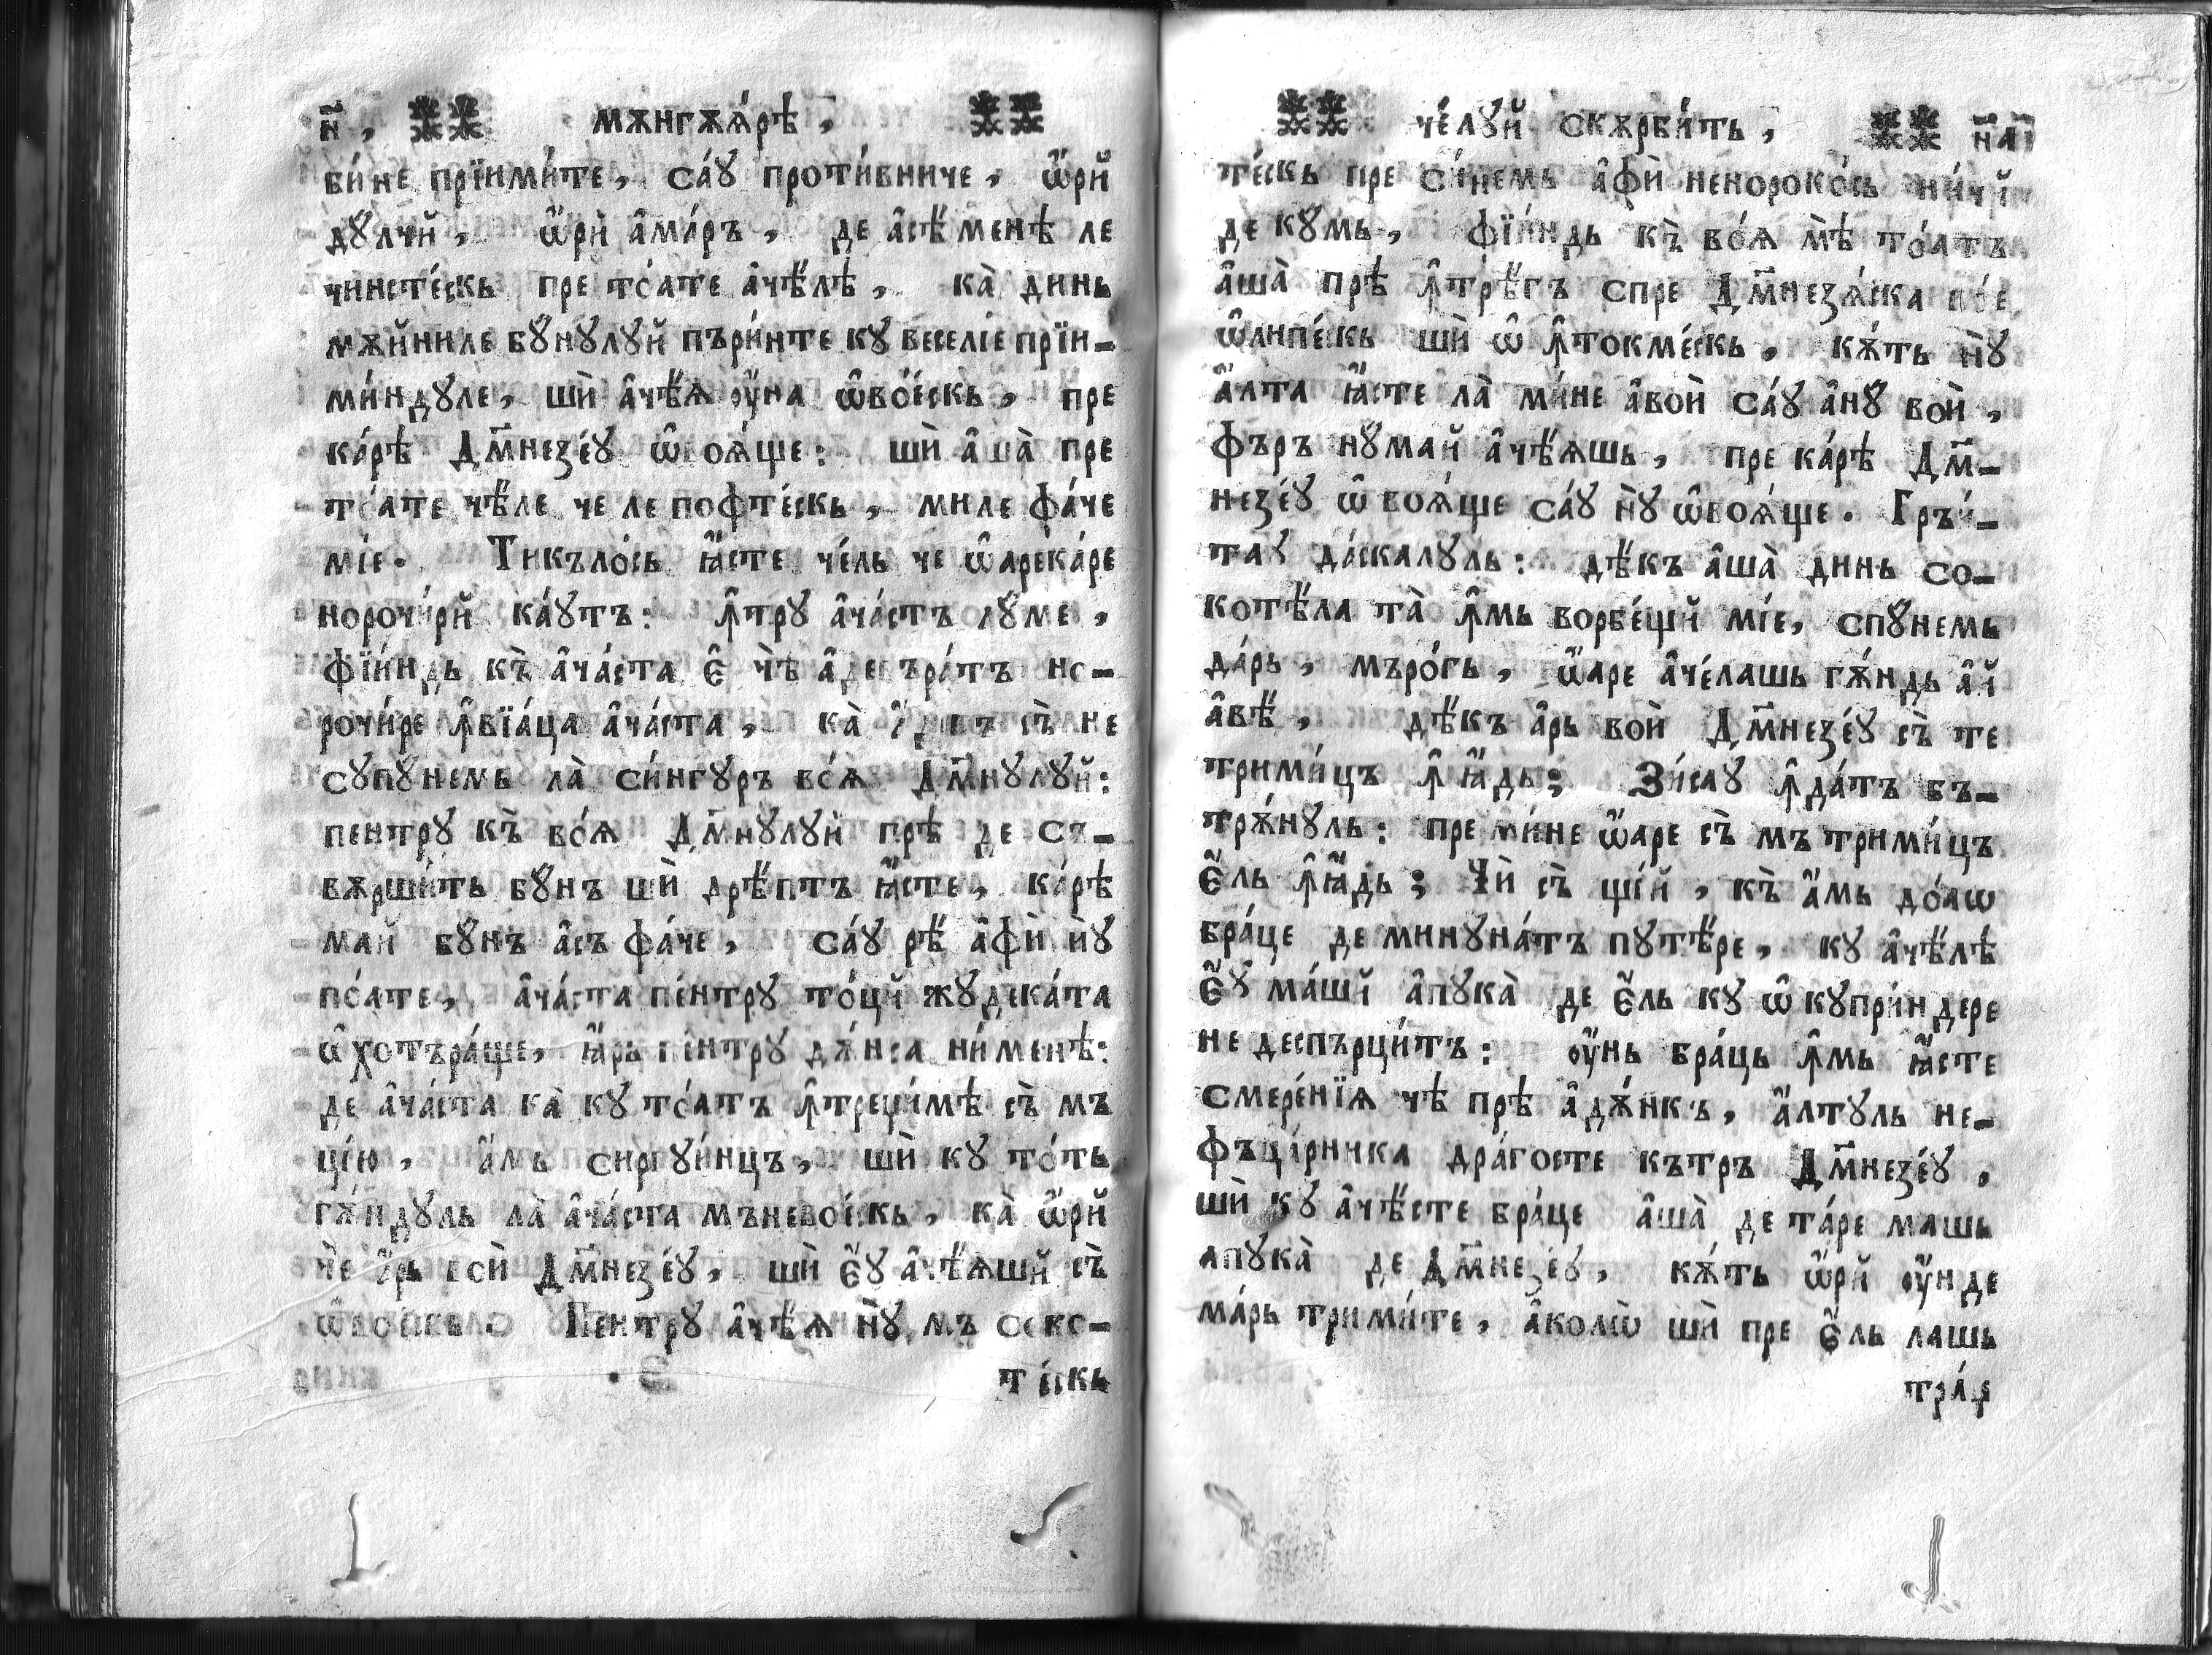 н҃, мѫнгѫꙗ́рѣ,
би́не прїими́те, са́ꙋ проти́вниче, ѡ҆́рй
дꙋ́лчй, ѡ҆́рѝ а҆ма́ръ, де а҆сѣ́менѣ ле
чинстéскь пре то́ате а҆чѣ́лѣ, ка̀ динь
мѫ́йниле бꙋ́нꙋлꙋй пъри́нте кꙋ веселі́е прїи-
ми́ндꙋле, шѝ а҆чѣ́ѧ ᲂу҆́на ѡ҆во́ескь, пре
ка́рѣ Дм҃незе́ꙋ ѡ҆воѧ́ще: шѝ а҆ша̀ пре
то́ате чѣ́ле че ле пофте́скь, миле фа́че
мі́е. Тикъло́сь ꙗ҆́сте че́ль че ѡ҆арека́ре
норочи́рй ка́ꙋтъ: ꙟ҆трꙋ а҆ча́стъ лꙋ́ме,
фїи́ндь къ̀ а҆ча́ста є҆̀ чѣ̀ а҆девъра́тъ но-
рочи́ре ꙟ҆вїа́ца а҆ча́ста, ка̀ съ̀ не
сꙋпꙋ́немь ла̀ си́нгꙋръ во́ѧ Дм҃нꙋлꙋй:
пентрꙋ къ̀ во́ѧ Дм҃нꙋлꙋй прѣ̀ де съ-
вѫрши́ть бꙋ́нъ шѝ дрѣ́птъ ꙗ҆́сте, ка́рѣ
май бꙋ́нъ а҆съ фа́че, са́ꙋ рѣ́ а҆фѝ нꙋ̀
по́ате, а҆ча́ста пе́нтрꙋ то́цй жꙋдека́та
ѡ҆хотъра́ще, ꙗ҆́рь пе́нтрꙋ дѫ́нса ни́менѣ:
де а҆ча́ста ка̀ кꙋ то́атъ ꙟ҆треци́мѣ съ̀ мъ
ці́ю, а҆́мь сиргꙋи́нцъ, шѝ кꙋ то́ть
гѫ́ндꙋль ла̀ а҆ча́ста мъневоéскь, ка̀ ѡ҆́рй
че а҆́рь воѝ Дм҃незе́ꙋ, шѝ є҆́ꙋ а҆чѣ́ѧшй съ̀
ѡ҆во́ескь. Пе́нтрꙋ а҆чѣ́ѧ нꙋ̀ мъ соко-
те́скь
че́лꙋй скѫрби́ть, н҃а
те́скь пре си́немь а҆фѝ неноро́кось ни́чй
де кꙋмь, фїи́ндь къ̀ во́ѧ мѣ̀ то́атъ
а҆ша̀ прѣ̀ ꙟ҆трѣ́гъ спре Дм҃незѧ́ска во́е
ѡ҆липе́скь шѝ ѡ҆ ꙟ҆токме́скь, кѫ́ть нꙋ̀
а҆́лта ꙗ҆́сте ла̀ ми́не а҆воѝ са́ꙋ а҆нꙋ́ воѝ,
фъръ нꙋ́май а҆чѣ́ѧшь, пре ка́рѣ Дм҃-
незе́ꙋ ѡ҆ воѧ́ще са́ꙋ нꙋ̀ ѡ҆воѧ́ще. Гръи́-
таꙋ да́скалꙋль: дѣ́къ а҆ша̀ динь со-
котѣ́ла та̀ ꙟ҆мь ворбе́щй мі́е, спꙋ́немь
да́рь, мъро́гь, ѡ҆́аре а҆че́лашь гѫ́ндь а҆́й
а҆вѣ́, дѣ́къ а҆рь воѝ Дм҃незе́ꙋ съ̀ те
трими́цъ ꙟ҆ ꙗ҆́дь; Зи́саꙋ ꙟ҆да́тъ бъ-
трѫ́нꙋль: пре ми́не ѡ҆́аре съ̀ мъ трими́цъ
є҆́ль ꙟ҆ꙗ҆́дь; Чѝ съ̀ щі́й, къ̀ а҆́мь до́аѡ
бра́це де минꙋна́тъ пꙋтѣ́ре, кꙋ а҆чѣ́лѣ
є҆́ꙋ ма́шй а҆пꙋка̀ де є҆́ль кꙋ ѡ҆ кꙋпри́ндере
не деспърци́тъ: ᲂу҆́нь бра́ць ꙟ҆мь ꙗ҆́сте
смере́нїѧ чѣ̀ прѣ̀ а҆дѫ́нкъ, а҆́лтꙋль не-
фъца́рника дра́госте кътръ Дм҃незе́ꙋ,
шѝ кꙋ а҆чѣ́сте бра́це а҆ша̀ де та́ре машь
апꙋка̀ де Дм҃незе́ꙋ, кѫ́ть ѡ҆́рй ᲂу҆́нде
ма́рь трими́те, а҆колѡ̀ шѝ пре є҆́ль лашь
тра́г